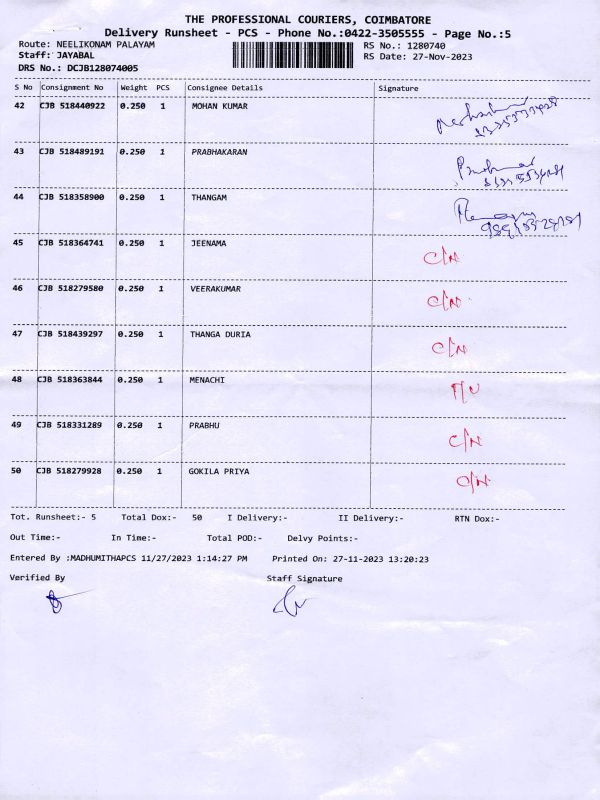 THE PROFESSIONAL COURIERS, COIMBATORE
Delivery Runsheet - PCS - Phone No.:0422-3505555 - Page No.:5
Route: NEELIKONAM PALAYAM RS No.: 1280740
Staff: JAYABAL RS Date: 27-Nov-2023
DRS No.: DCJB128074005
S No Consignment No Weight PCS Consignee Details Signature
42 CJB 518440922 0.250 1 MOHAN KUMAR
43 CJB 518489191 0.250 1 PRABHAKARAN
44 CJB 518358900 0.250 1 THANGAM
45 CJB 518364741 0.250 1 JEENAMA C/N
46 CJB 518279580 0.250 1 VEERAKUMAR C/N
47 CJB 518439297 0.250 1 THANGA DURIA C/N
48 CJB 518363844 0.250 1 MENACHI
49 CJB 518331289 0.250 1 PRABHU C/N
50 CJB 518279928 0.250 1 GOKILA PRIYA C/N
Tot. Runsheet:- 5 Total Dox:- 50 I Delivery:- II Delivery:- RTN Dox:-
Out Time:- In Time:- Total POD:- Delvy Points:-
Entered By :MADHUMITHAPCS 11/27/2023 1:14:27 PM Printed On: 27-11-2023 13:20:23
Verified By Staff Signature